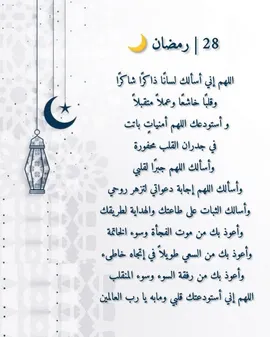 28 | رمضان 🌙
اللهم إني أسألك لسانًا ذاكرًا شاكرًا
وقلبًا خاشعًا وعملاً متقبلاً
و أستودعك اللهم أمنياتٍ باتت
في جدران القلب محفورة
وأسألك اللهم جبرًا لقلبي
وأسألك اللهم إجابة دعواتي لتزهر روحي
وأسالك الثبات على طاعتك والهداية لطريقك
وأعوذ بك من موت الفجأة وسوء الخاتمة
وأعوذ بك من السعي طويلاً في إتجاه خاطىء
وأعوذ بك من رفقة السوء وسوء المنقلب
اللهم إني أستودعتك قلبي ومابه يا رب العالمين